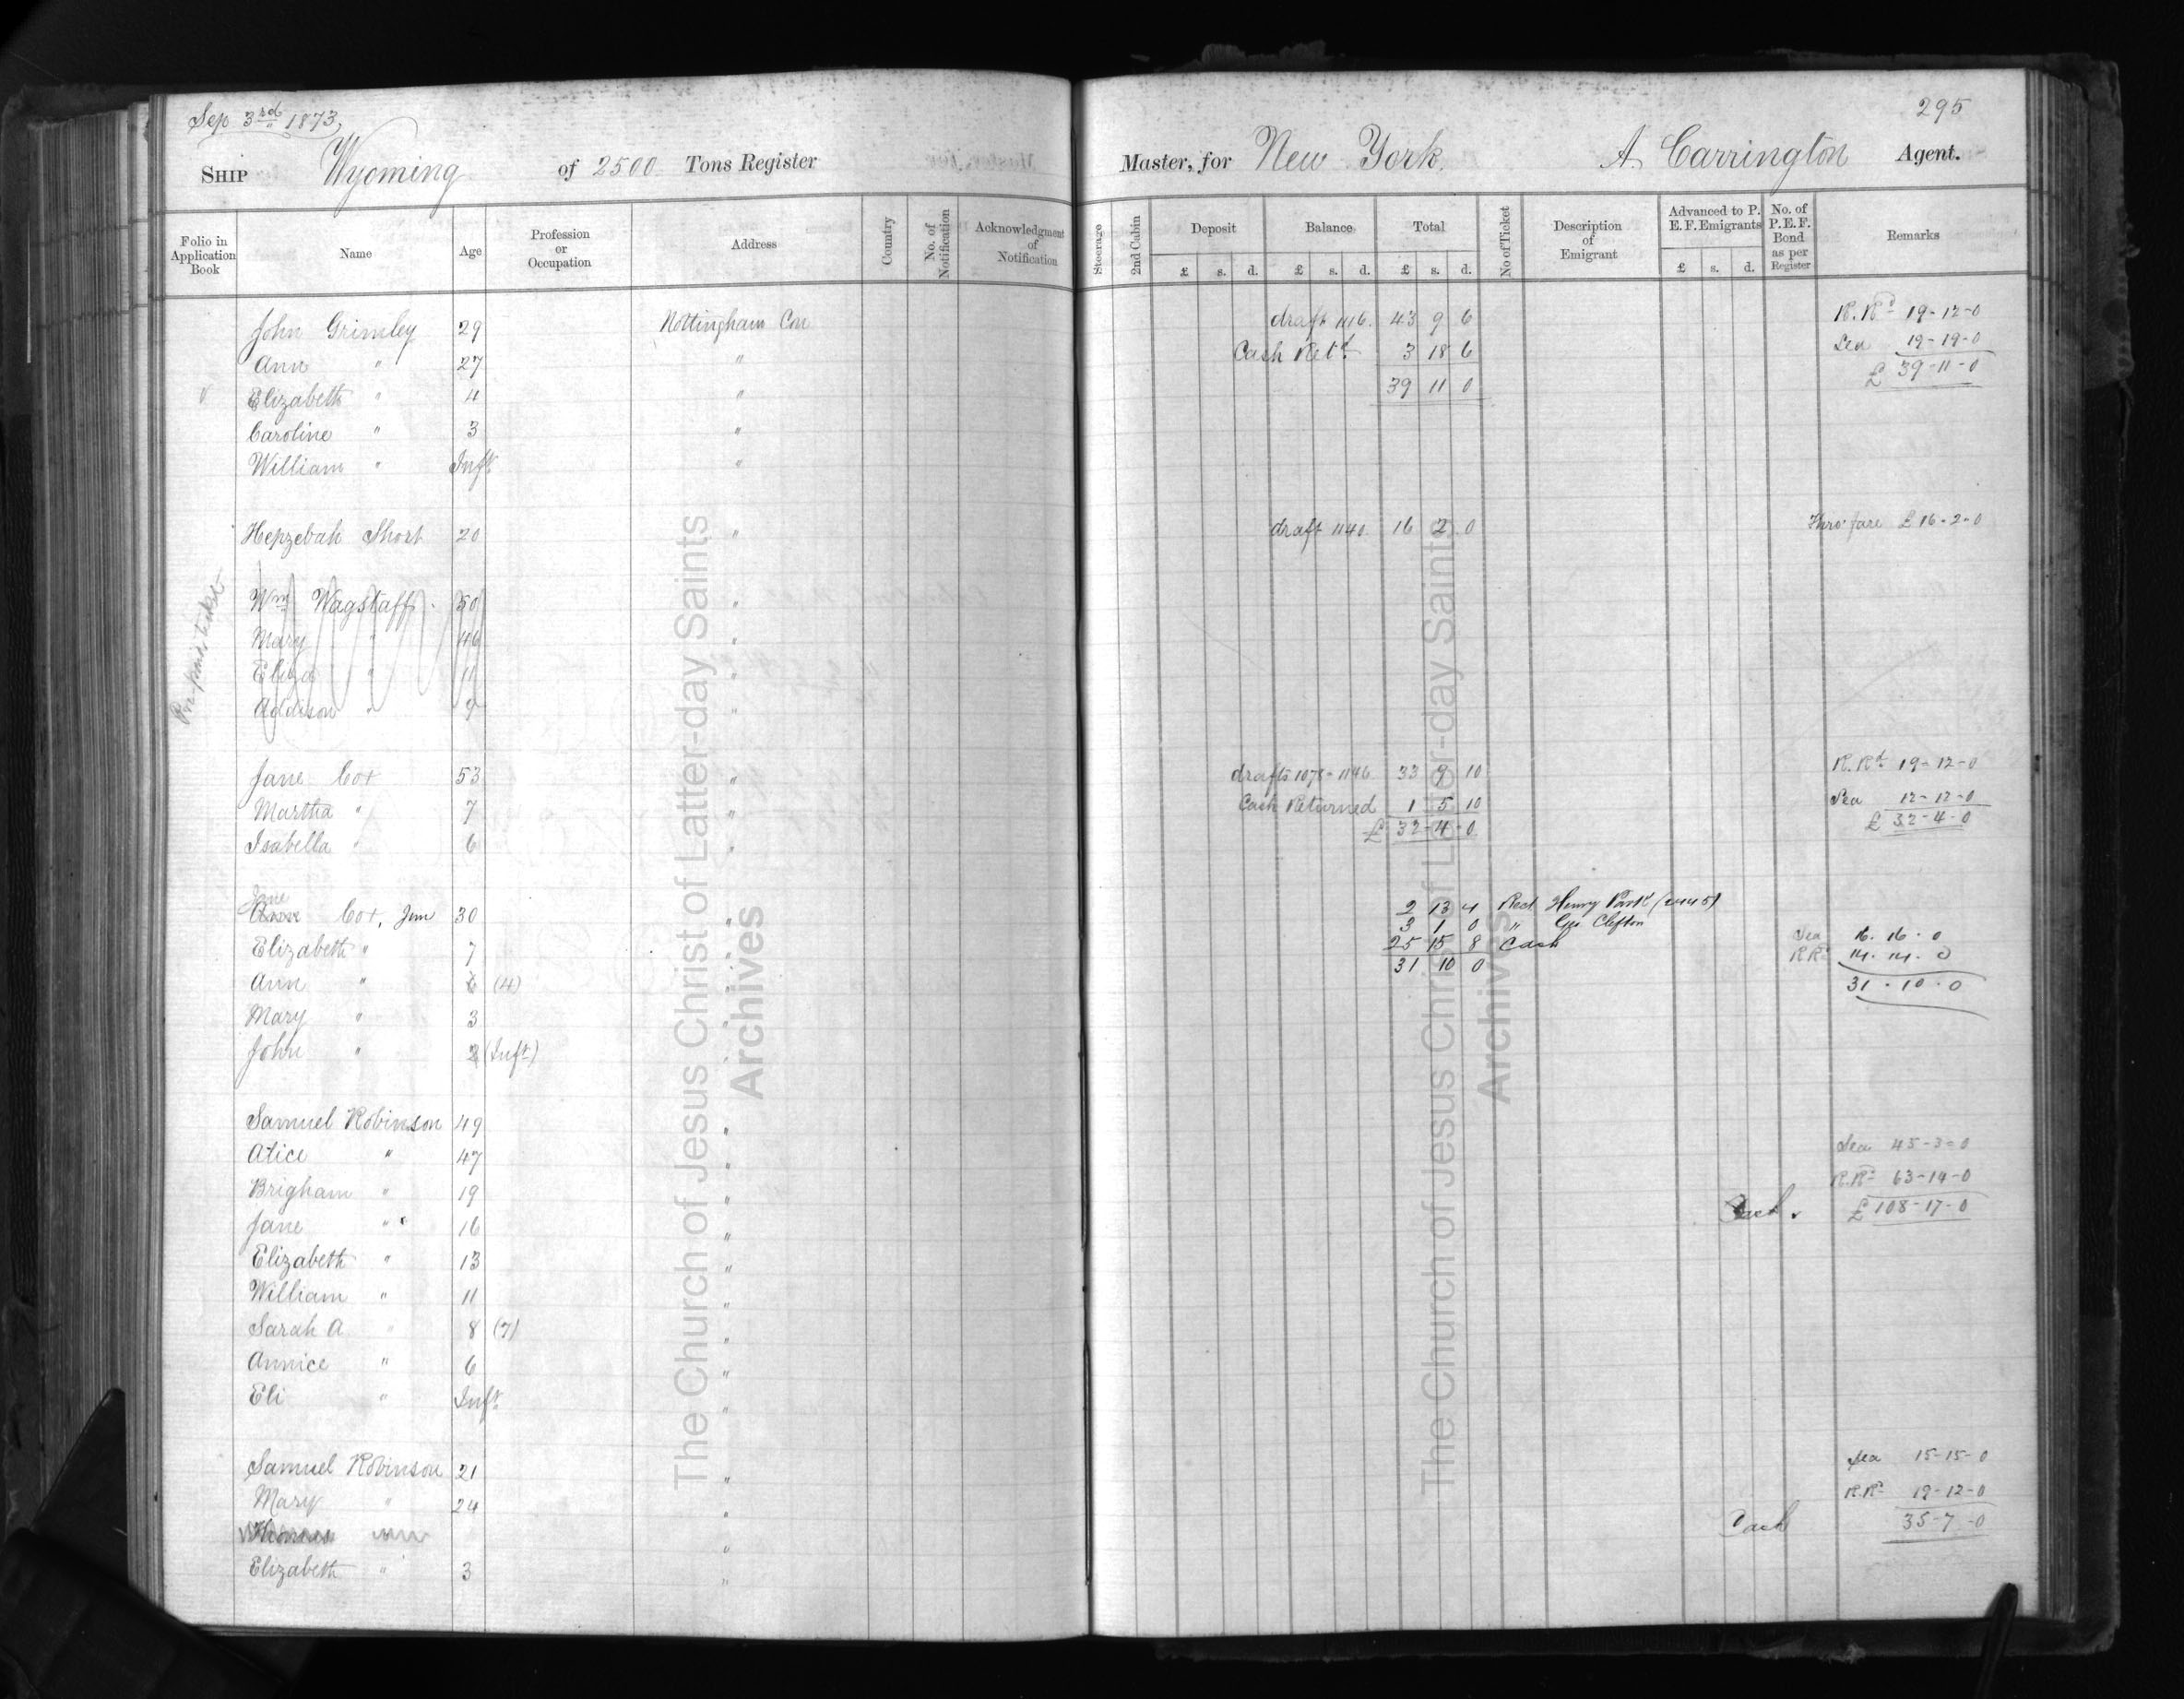 Sep 3rd 1873, 295
SHIP Wyoming of 2500 Tons Register Master, for New York. A. Carrington Agent.
Folio in Application Book Name Age Profession or Occupation Address Country No. of Notification Acknowledgment of Notification Steerage 2nd Cabin Deposit Balance Total No of Ticket Description of Emigrant Advanced to P. E. F. Emigrants No. of P.E.F. Bond as per Register Remarks
£ s. d. £ s. d. £ s. d. £ s. d.
John Grimley 29 Nottingham Con draft 1116. 43 9 6 R.Rd 19-12-0
Ann " 27 " Cash Retd 3 18 6 Sea 19-19-0
Elizabeth " 4 " 39 11 0 £ 39-11-0
Caroline " 3 "
William " Inft "
Hepzebah Short 20 " draft 1140. 16 2 0 Thro' fare £16-2-0
Pre-paid ticket
Wm Wagstaff 50 "
Mary " 46 "
Eliza " 11 "
Addison " 9 "
Jane Cox 53 " drafts 1078-1146. 33 9 10 R.Rd 19-12-0
Martha " 7 " Cash Returned 1 5 10 Sea 12-12-0
Isabella " 6 " £ 32-4-0 £ 32-4-0
Jane
Cox, Jun 30 " 2 13 4 Rect Henry Park (2445)
3 1 0 " Geo Clefton
Elizabeth " 7 " 25 15 8 Cash Sea 16. 16. 0
31 10 0 R Rd 14. 14. 0
Ann " (4) " 31. 10. 0
Mary " 3 "
John " 2 (Inft) "
Samuel Robinson 49 "
Alice " 47 " Sea 45-3-0
Brigham " 19 " R.Rd 63-14-0
Jane " 16 " Cash. £108-17-0
Elizabeth " 13 "
William " 11 "
Sarah A " 8 (7) "
Annice " 6 "
Eli " Inft "
Samuel Robinson 21 " Sea 15-15-0
Mary " 24 " R.Rd 19-12-0
Thomas " Cash 35-7-0
Elizabeth " 3 "
The Church of Jesus Christ of Latter-day Saints
Archives
The Church of Jesus Christ of Latter-day Saints
Archives